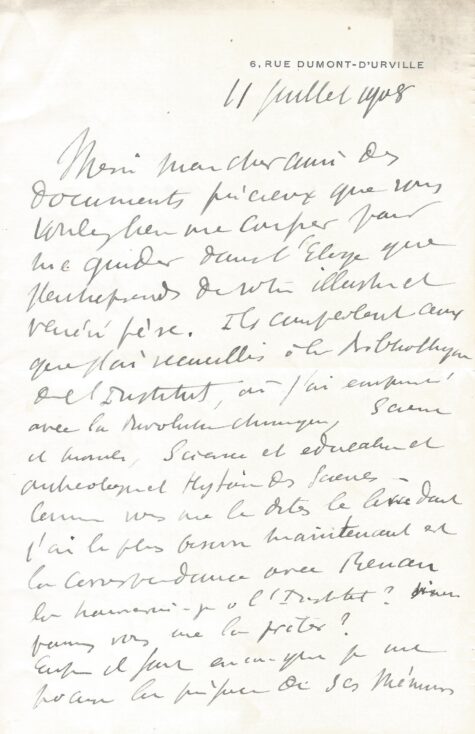 6, RUE DUMONT-D'URVILLE
11 Juillet 1908
Merci mon cher ami des
documents précieux que vous
voulez bien me confier pour
me guider dans l'Eloge que
j'entreprends de votre illustre et
vénéré père. Ils complètent ceux
que j'ai recueillis à la Bibliothèque
de l'Institut, où j'ai emprunté
avec la Révolution chimique, Science
et morale, Science et education et
archéologie et Histoire des Sciences -
Comme vous me le dites le livre dont
j'ai le plus besoin maintenant est
la correspondance avec Renan
la trouverai-je à l'Institut? sinon
pouvez vous me la prêter?
Enfin il faut encore que je me
procure la préface de ses Mémoires